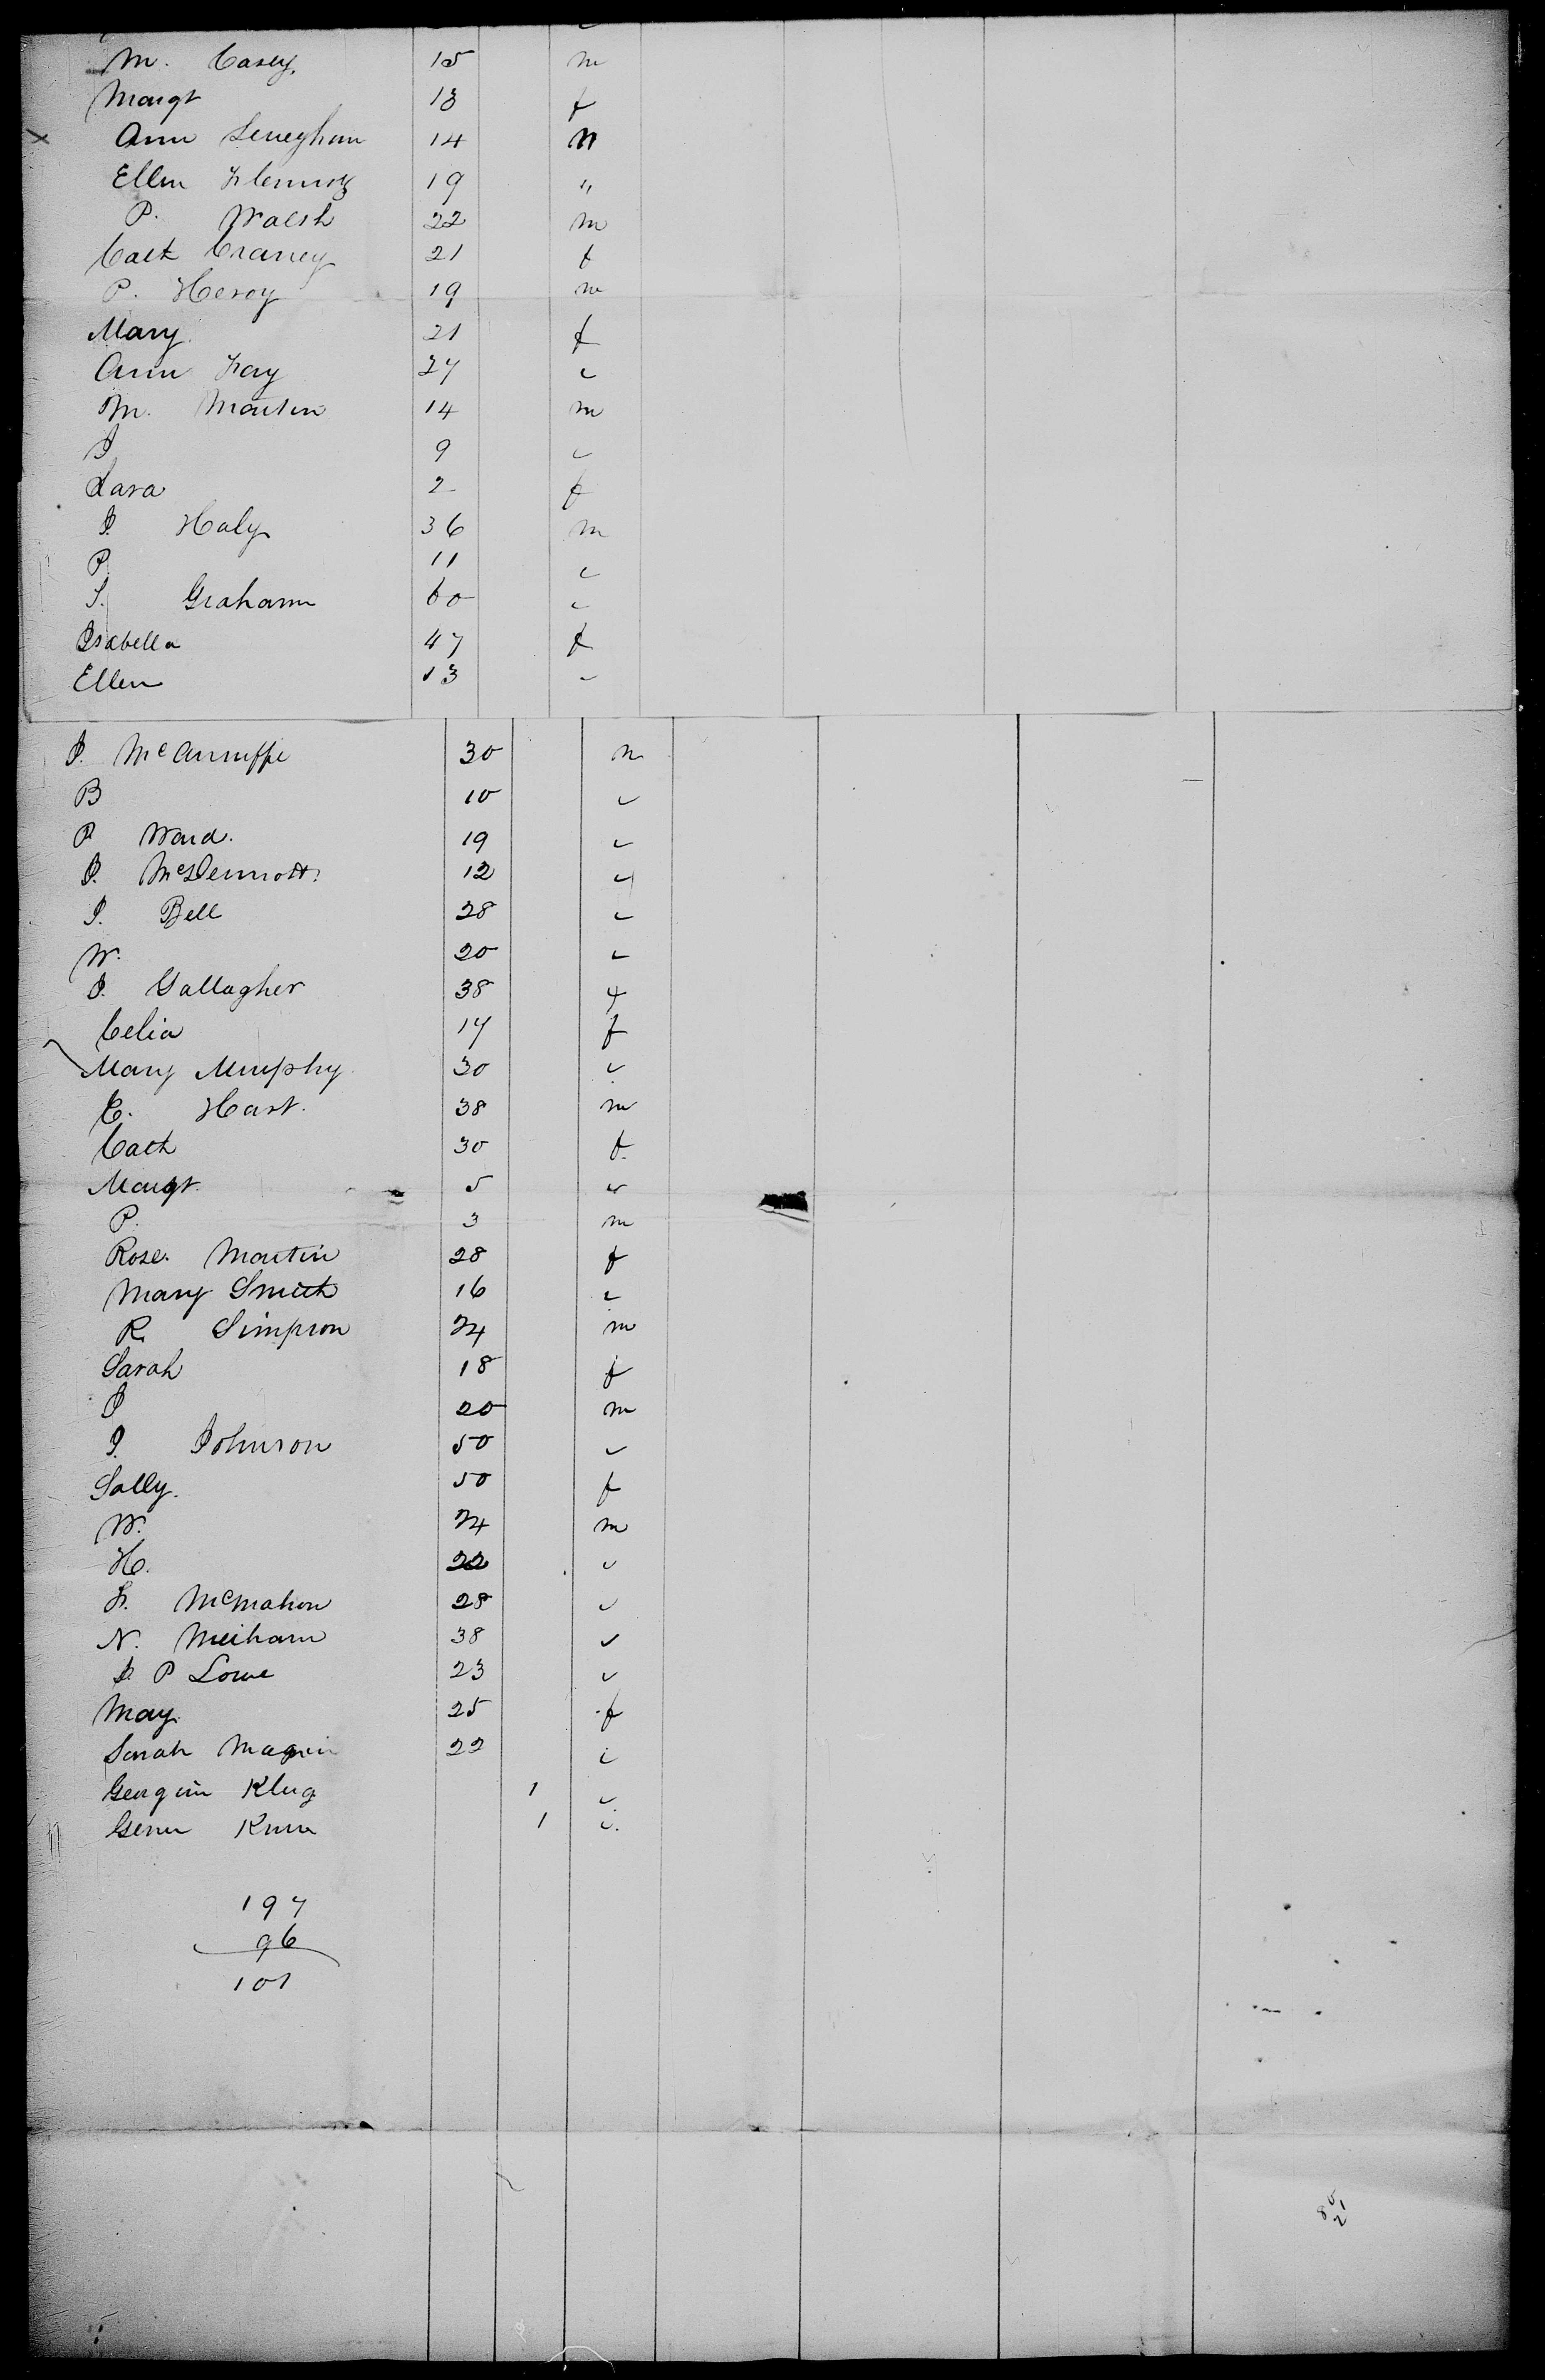 M. Casey 15 m
Margt 13 f
x Ann Leneghan 14 "
Ellen Fleming 19 "
P. Walsh 22 m
Cath Craney 21 f
P. Heroy 19 m
Mary 21 f
Ann Fay 27 "
M. Martin 14 m
J 9 "
Sara 2 f
J. Haly 36 m
P. 11 "
S. Graham 60 "
Isabella 47 f
Ellen 13 "
J. McAnuffe 30 m
B 10 "
P Ward. 19 "
J. McDermott. 12 "
J. Bell 28 "
W. 20 "
J. Gallagher 38 "
Celia 17 f
Mary Murphy 30 "
E. Hart. 38 m
Cath 30 f.
Margt. 5 "
P. 3 m
Rose. Martin 28 f
Mary Smith 16 "
R. Simpson 24 m
Sarah 18 f
J 20 m
J. Johnson 50 "
Sally. 50 f
W. 24 m
H. 22 "
F. McMahon 28 "
N. Meiham 38 "
J. P Lowe 23 "
May. 25 f
Sarah 22 "
Klug 1 "
1 "
197
96
101